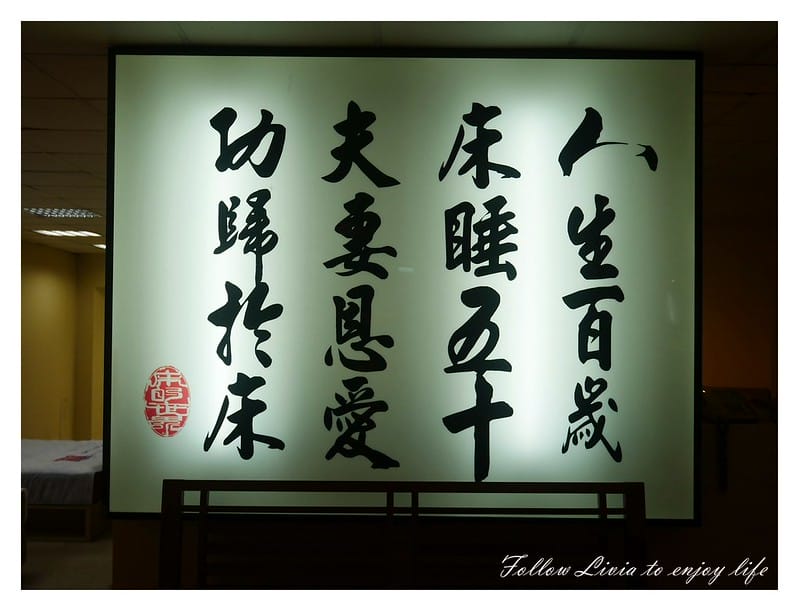 人生百歲
床睡五十
夫妻恩愛
功歸於床
床的世界
Follow Livia to enjoy life